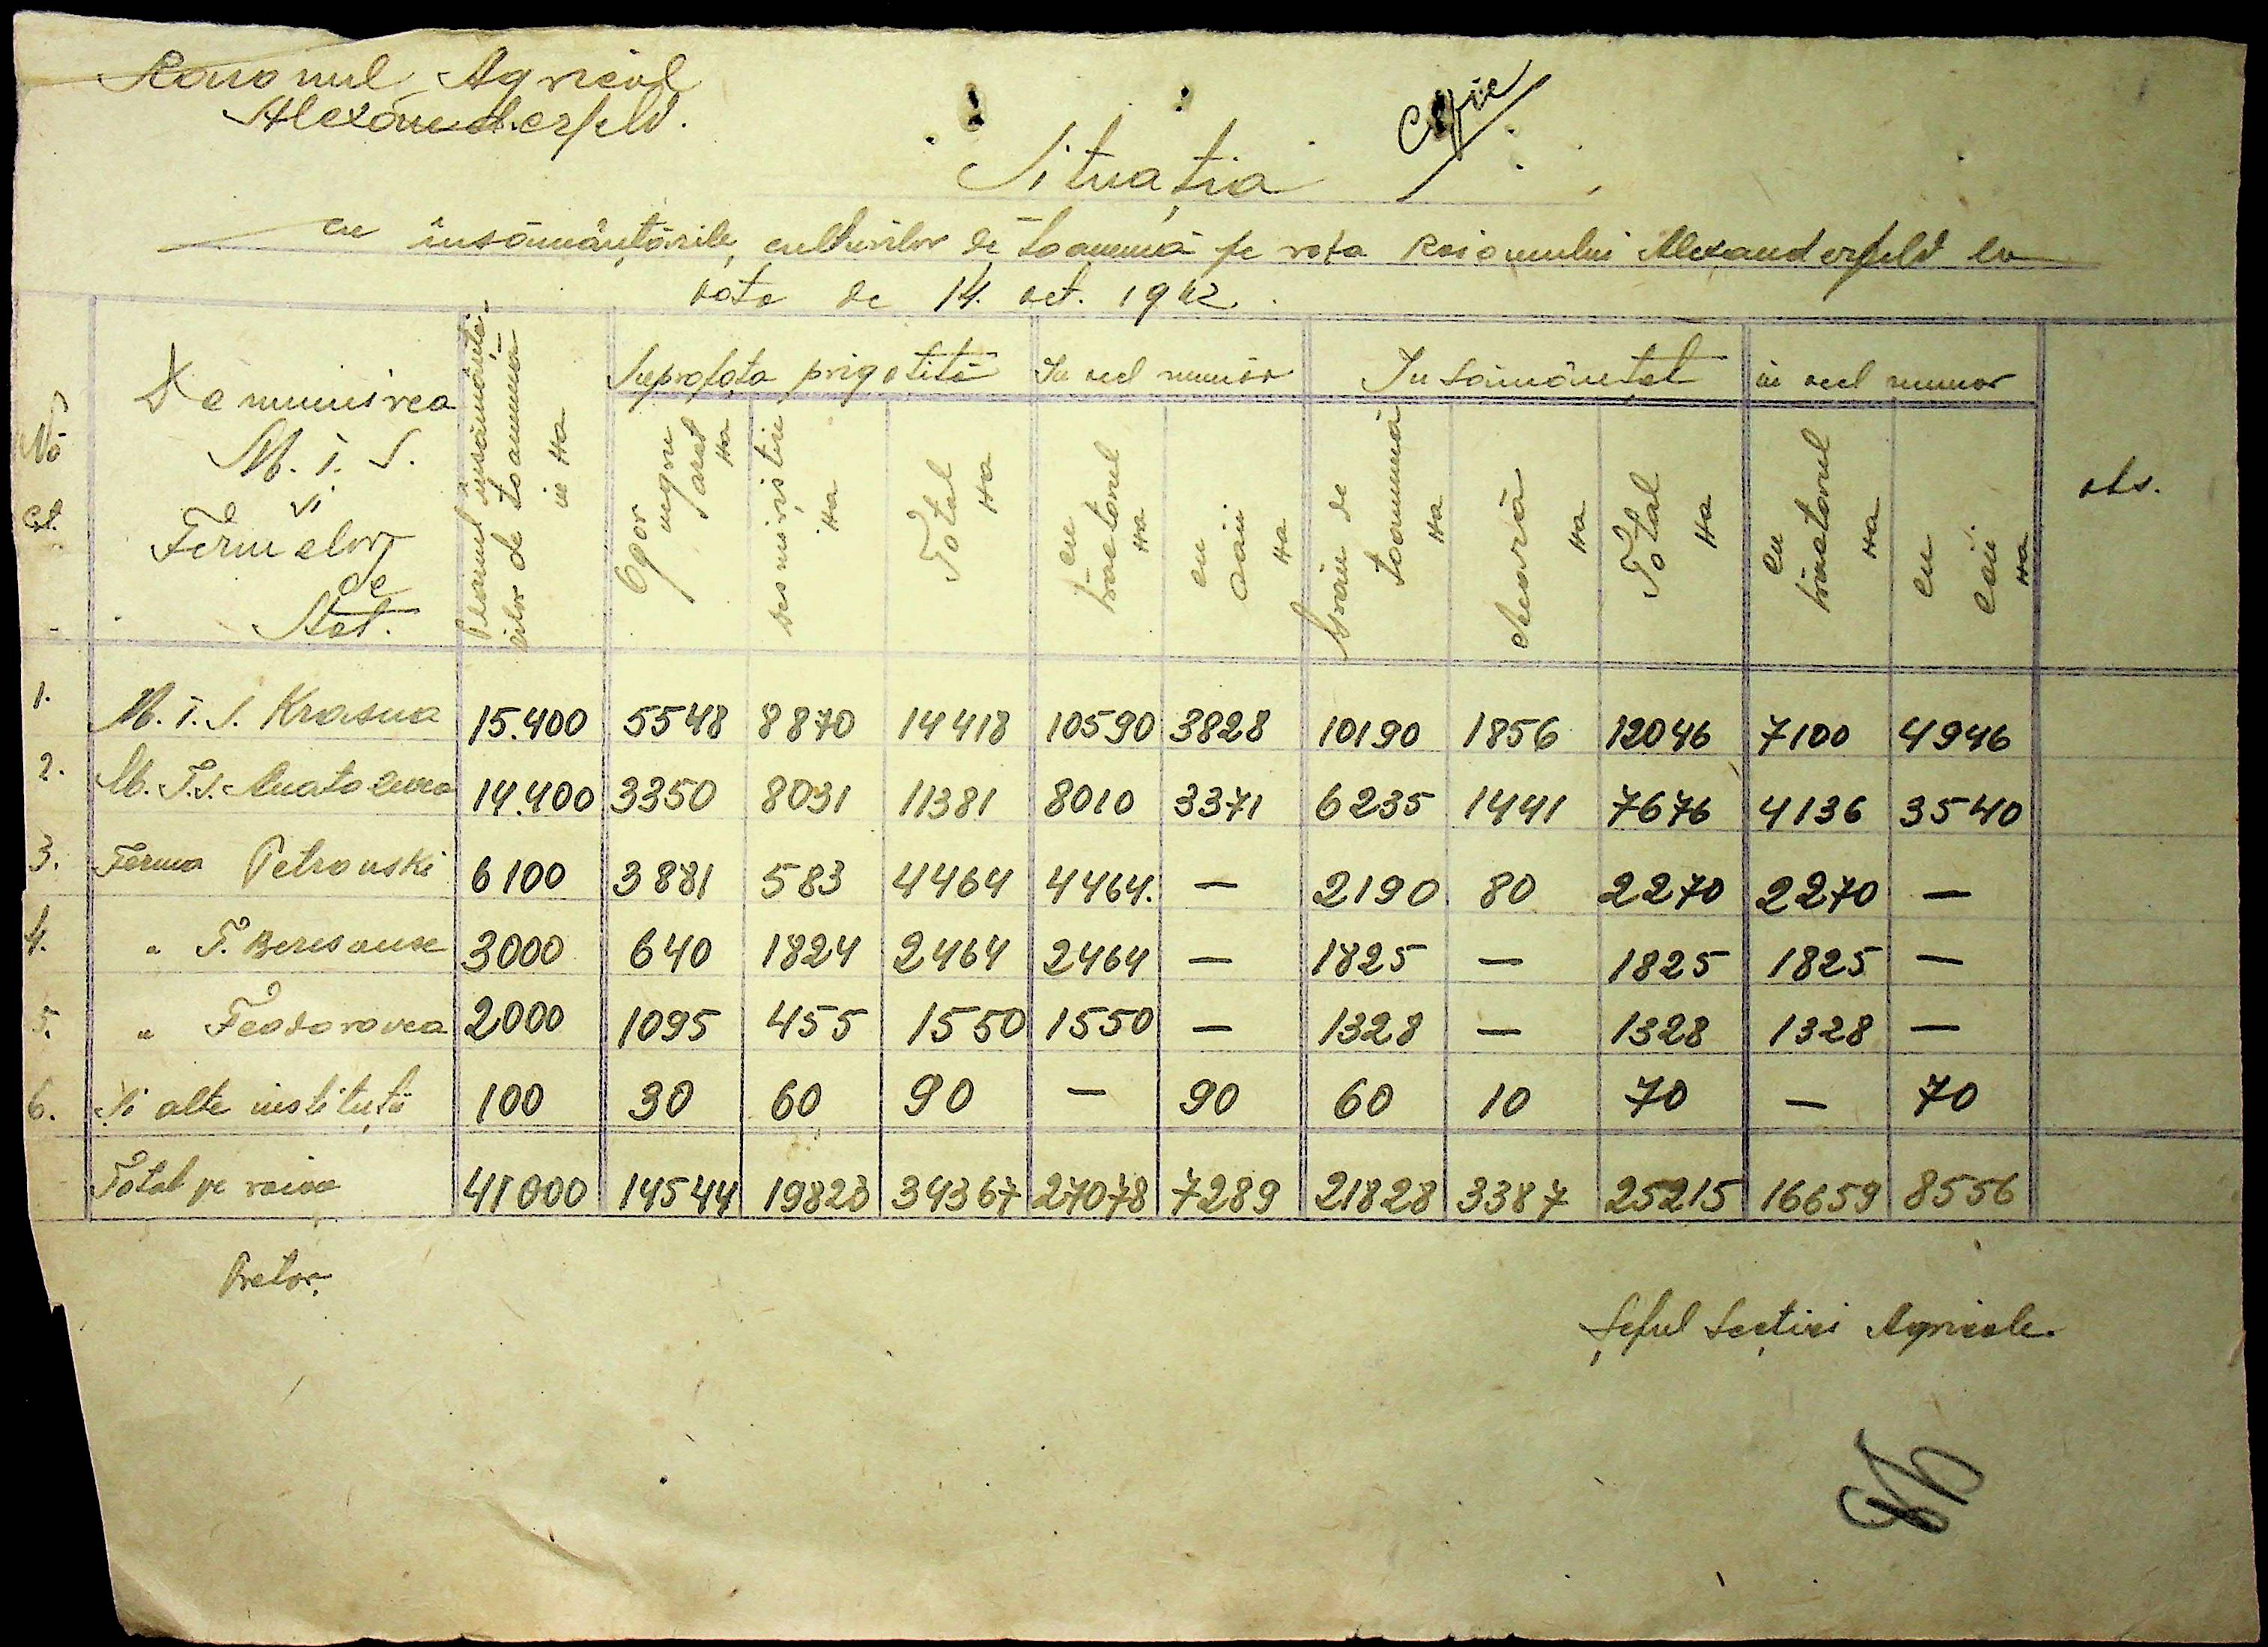 Raionul Agricol
Alexanderfeld.
Copie
Situația
cu însămânțările culturilor de toamnă pe raza Raionului Alexanderfeld la
data de 14. oct. 1942.
No
crt.
Denumirea
M. T. S.
și
Fermelor
de
Stat.
Planul însămânță-
rilor de toamnă
in Ha
Suprafața prigătită
Ogor
negru
arat
Ha
desmiriștire
Ha
Total
Ha
In acel număr
cu
tractorul
Ha
cu
caii
Ha
In sămânțat
Grâu de
toamnă
Ha
secară
Ha
Total
Ha
in acel numar
cu
tractorul
Ha
cu
caii
Ha
obs.
1. M. T. S. Krasna 15.400 5548 8870 14418 10590 3828 10190 1856 12046 7100 4946
2. M. T. S. Anatolevca 14.400 3350 8031 11381 8010 3371 6235 1441 7676 4136 3540
3. Ferma Petrovski 6100 3881 583 4464 4464. — 2190 80 2270 2270 —
4. " T. Beresansc 3000 640 1824 2464 2464 — 1825 — 1825 1825 —
5. " Feodorovca 2000 1095 455 1550 1550 — 1328 — 1328 1328 —
6. Și alte instituță 100 30 60 90 — 90 60 10 70 — 70
Total pe raion 41000 14544 19823 34367 27078 7289 21828 3387 25215 16659 8556
Pretor,
Șeful Secției Agricole.